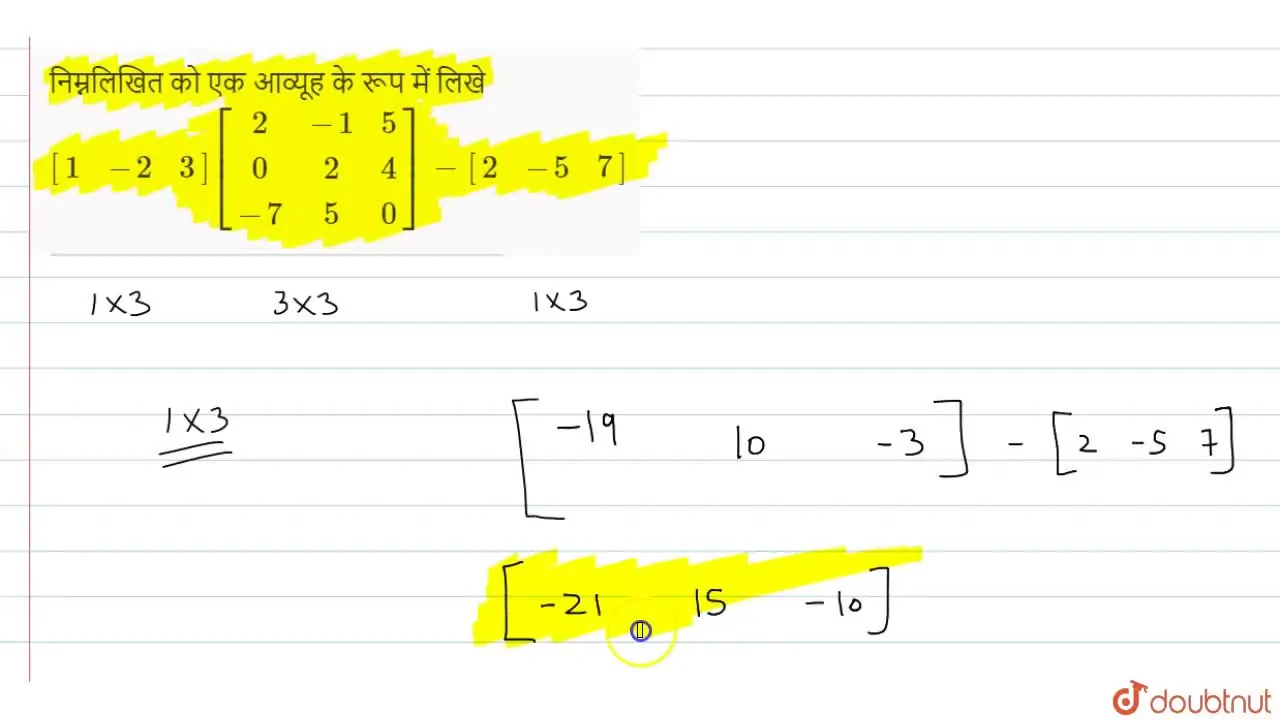 निम्नलिखित को एक आव्यूह के रूप में लिखे
[1 -2 3] [2 -1 5
0 2 4
-7 5 0] - [2 -5 7]
1×3 3×3 1×3
1×3
[-19 10 -3] - [2 -5 7]
[-21 15 -10]
doubtnut